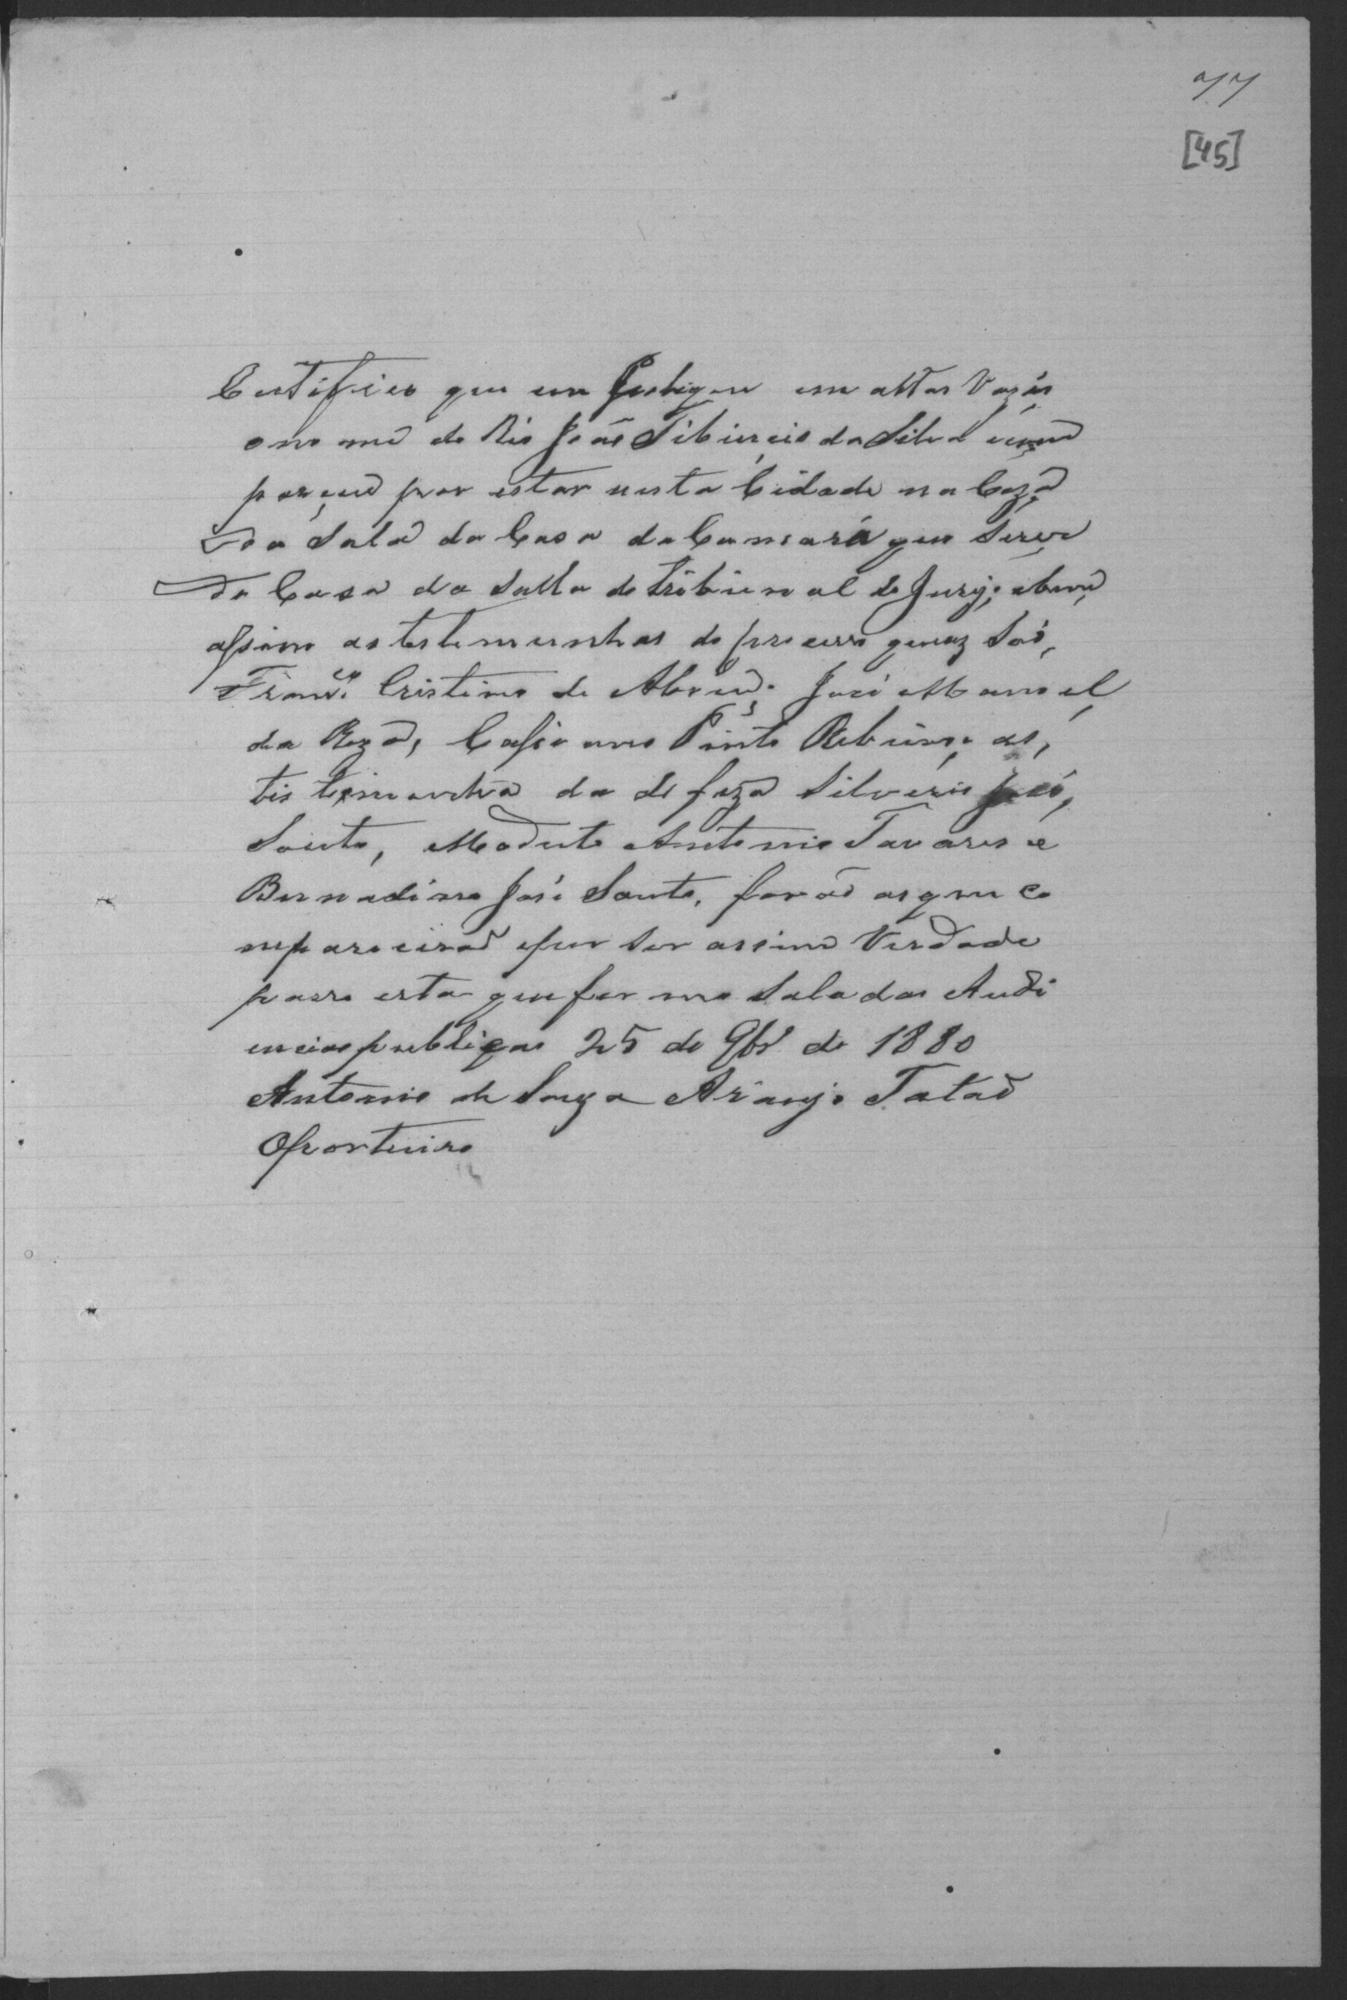 77
[45]
Certifico que eu Pubiquei em altas Vozis
o nome do Rio João Tibiurcio da Silva
por estar nesta Cidade na Caza
da Sala da Casa da Camara que Serve
da Casa da Salla do Tribiunal do Jury;
assim as testemunhas do processo quaiz Saõ,
Franco. Cristino de Abreu; José Manoel
da Roza, Cassiano Pinto Ribeiro; as,
tistimunha da defeza Silverio José,
Souto, Modesto Antonio Tavares e
Bernadino José Souto, foraõ as que co
mpareciraõ e por ser assim Verdade
passo esta que fis na Sala das Audi
encias publicas 25 de 9br.o de 1880
Antonio de Souza Araujo Tataõ
O porteiro